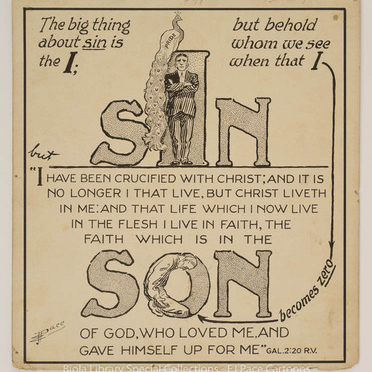 The big thing
about sin is
the I;
but behold
whom we see
when that I
PRIDE
SIN
but
"I HAVE BEEN CRUCIFIED WITH CHRIST; AND IT IS
NO LONGER I THAT LIVE, BUT CHRIST LIVETH
IN ME: AND THAT LIFE WHICH I NOW LIVE
IN THE FLESH I LIVE IN FAITH, THE
FAITH WHICH IS IN THE
SON
becomes zero
OF GOD, WHO LOVED ME, AND
GAVE HIMSELF UP FOR ME" GAL. 2:20 R.V.
EJPace
Biola Library Special Collections - EJ Pace Cartoons